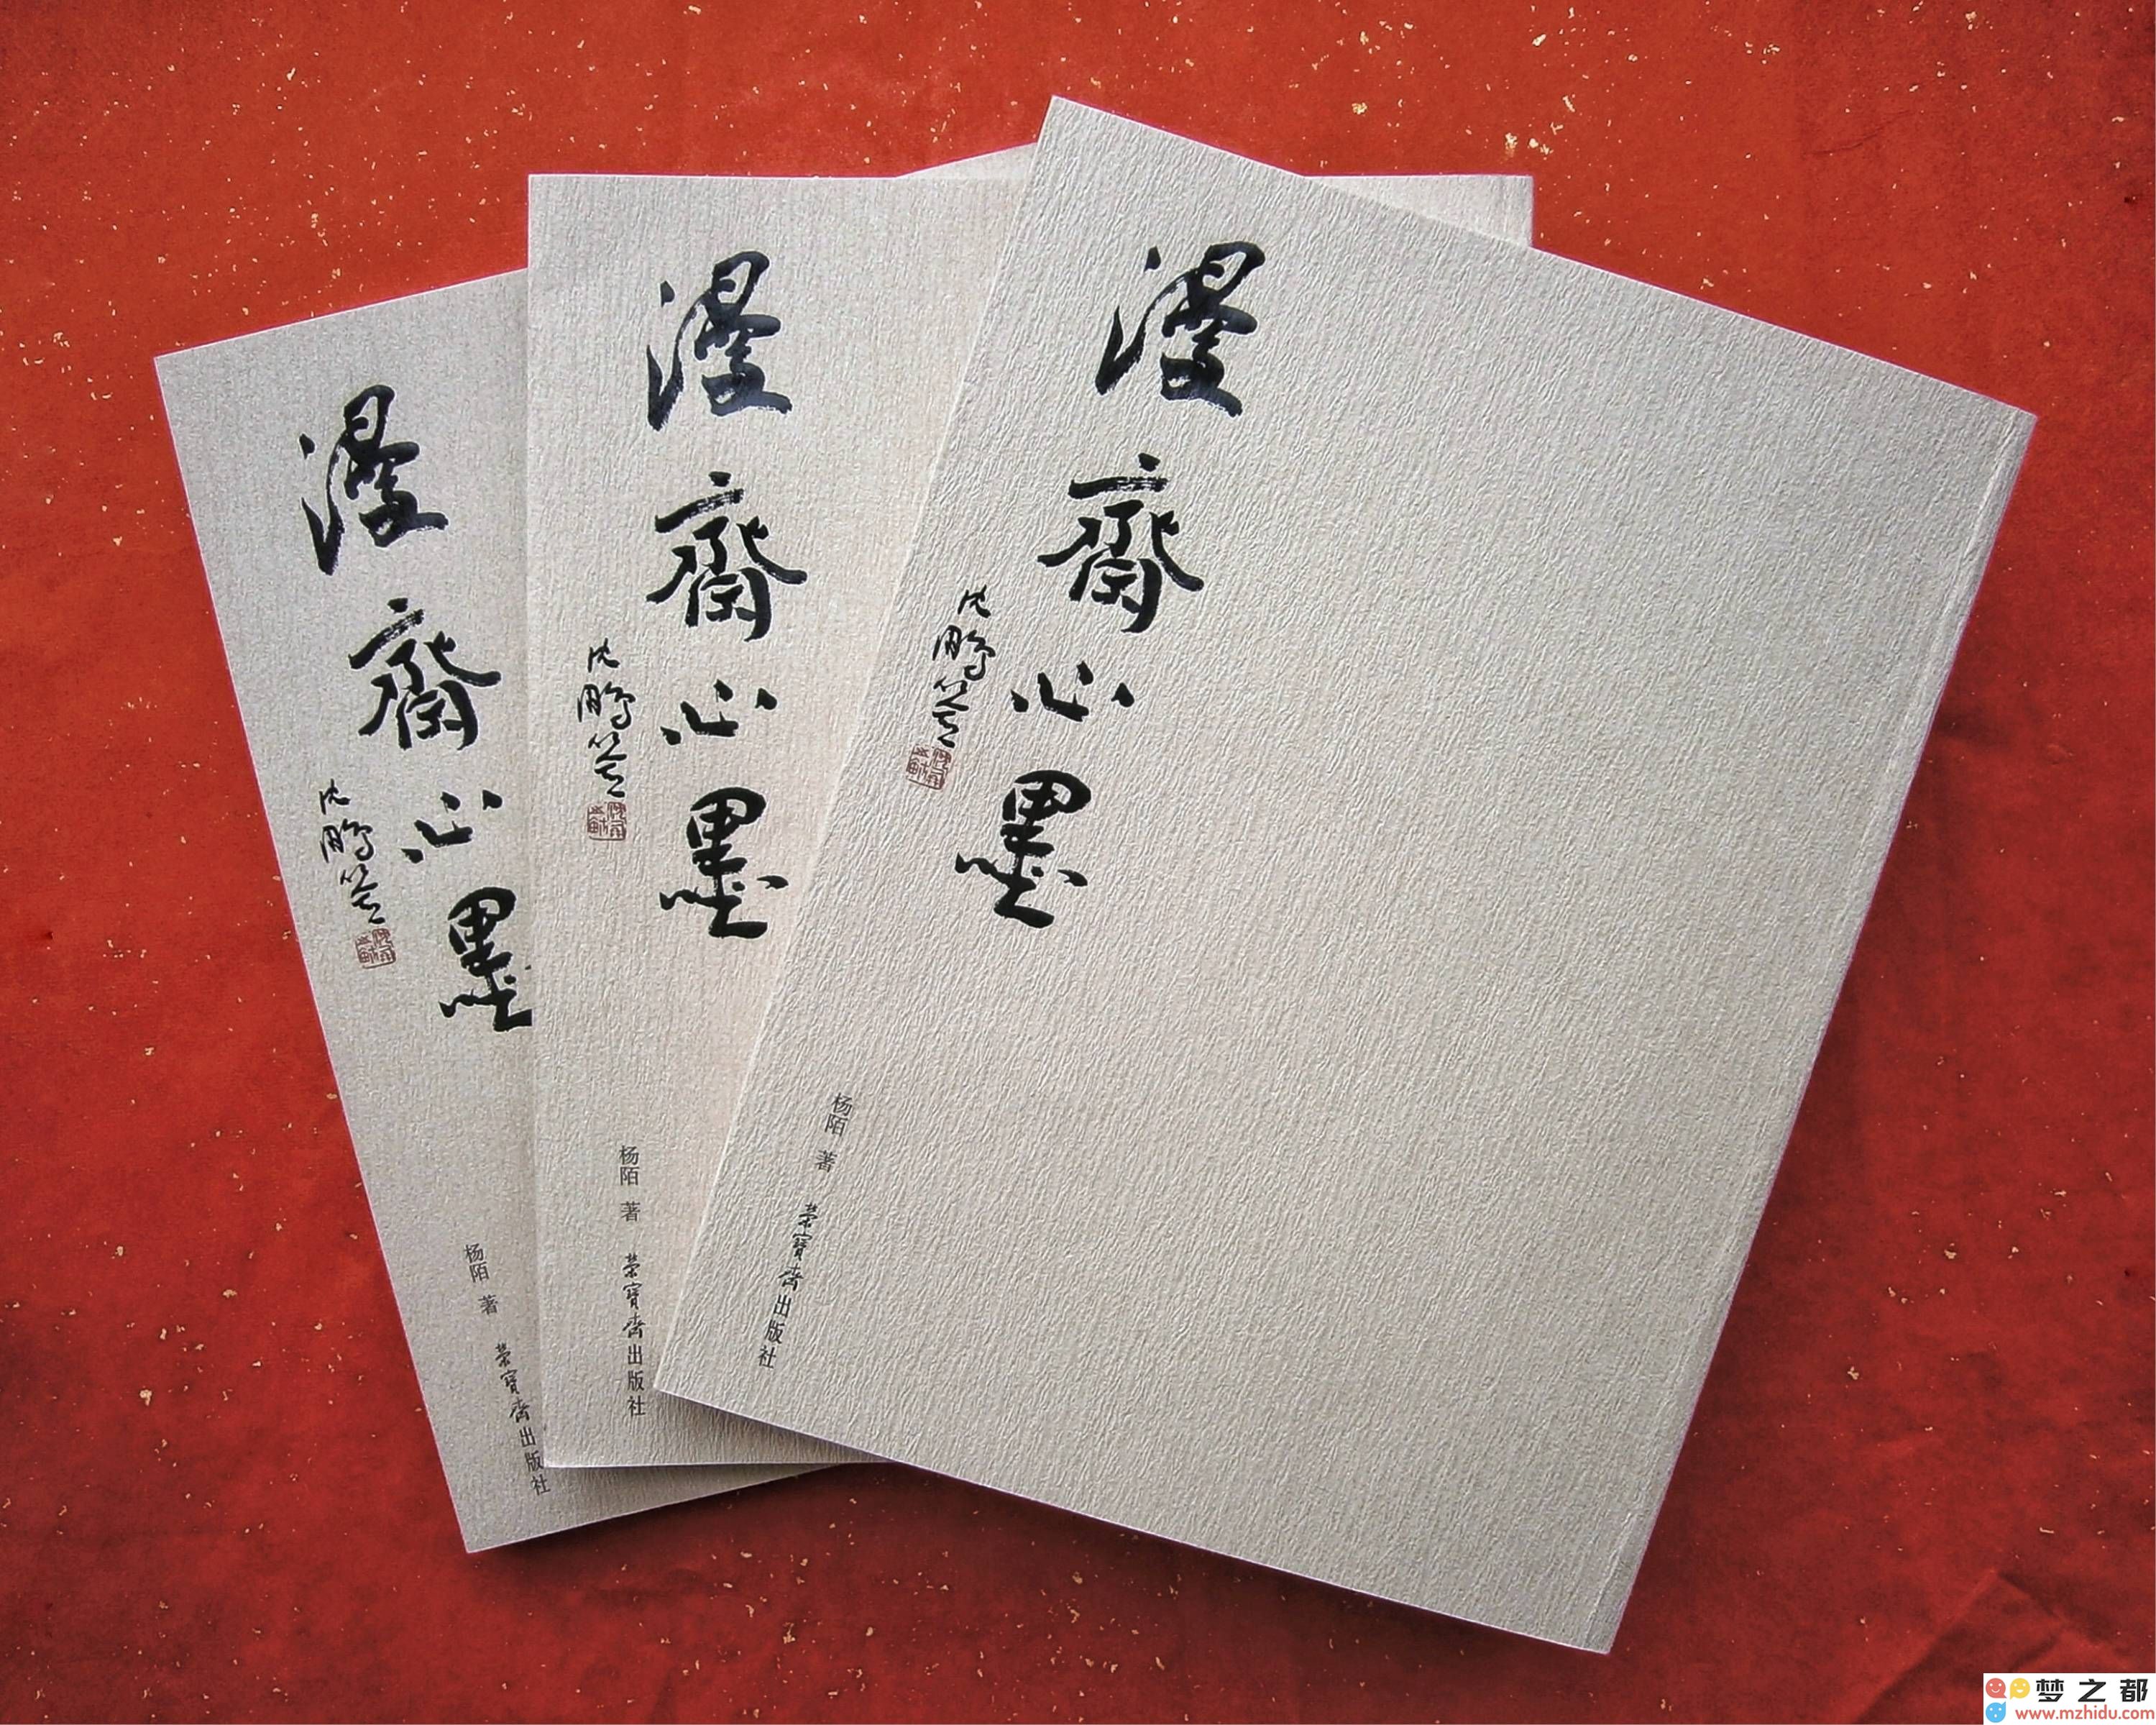 漫齋心墨
沈鹏签
杨陌 著
荣寶齋出版社
漫齋心墨
沈鹏签
杨陌 著
荣寶齋出版社
漫齋心墨
沈鹏签
杨陌 著
荣寶齋出版社
梦之都
www.mzhidu.com